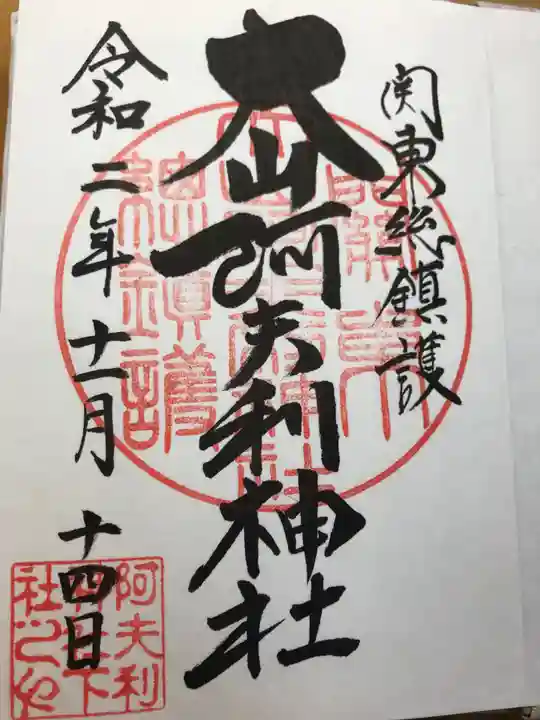 関東総鎮護
大山阿夫利神社
令和二年十一月十四日
關東總鎮護
阿夫利
社下
社